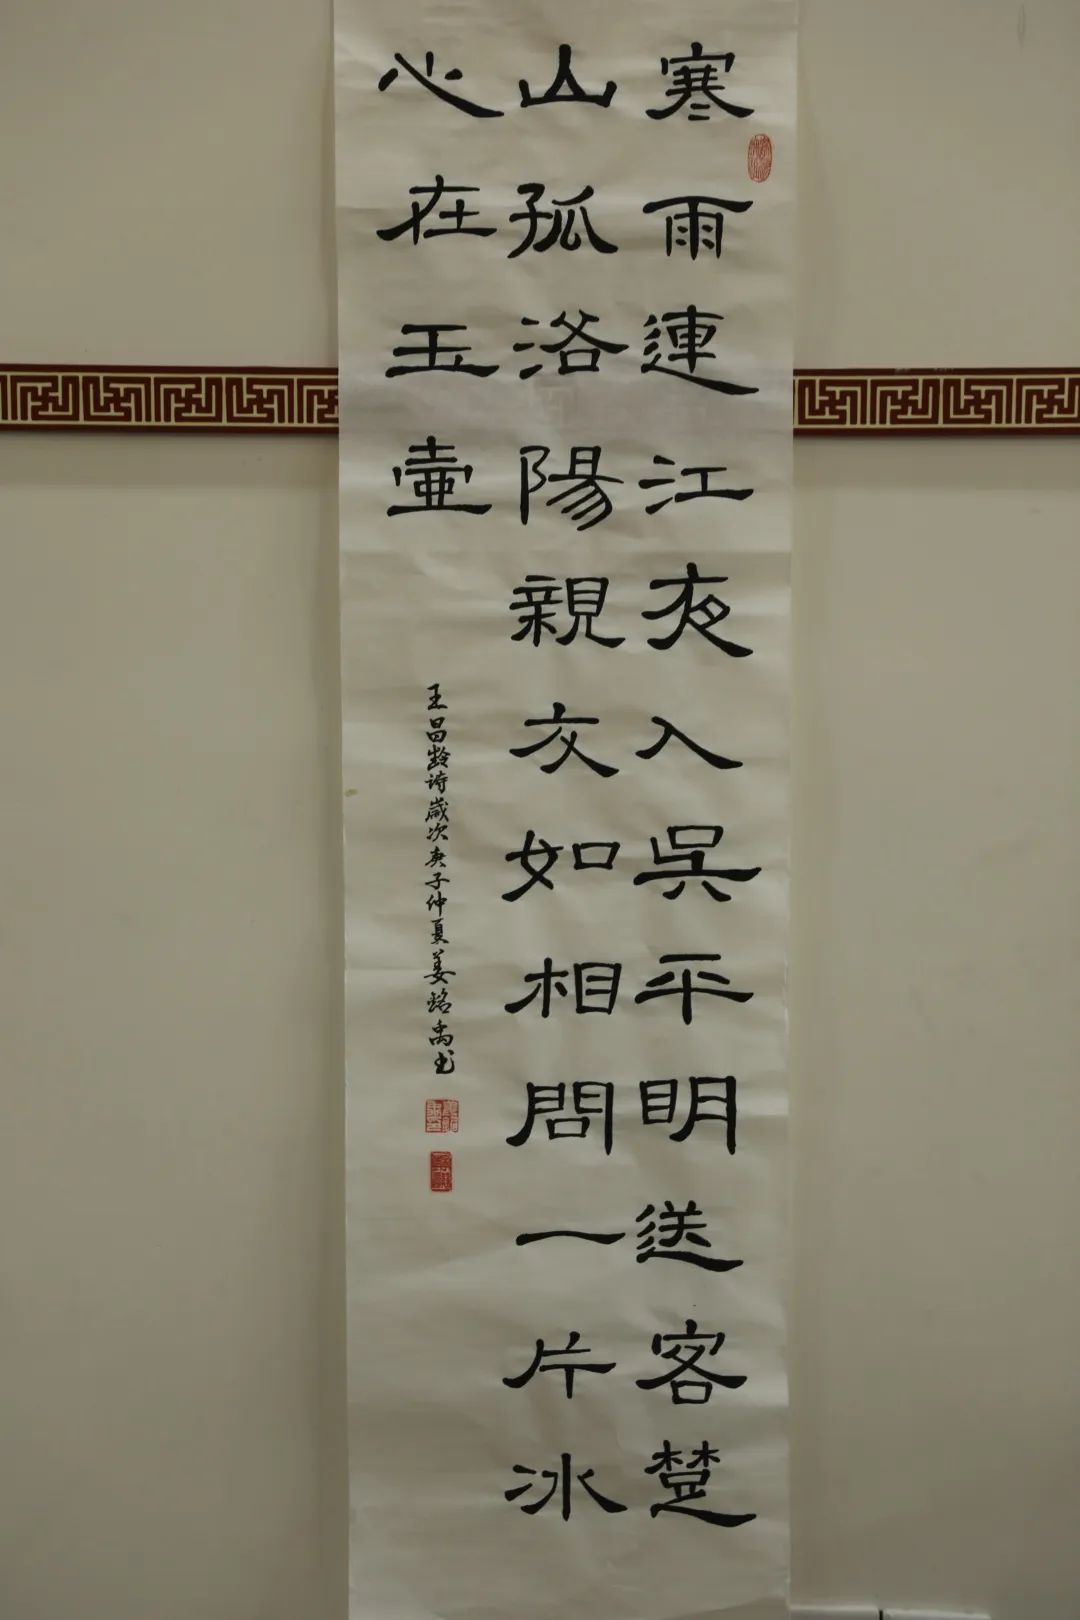 寒雨連江夜入吳平明送客楚
山孤洛陽親友如相問一片冰
心在玉壺
王昌齡詩歲次庚子仲夏姜銘禹书